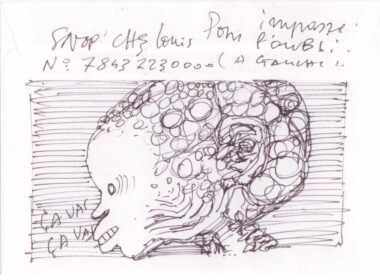 SNOP' CHEZ Louis Pour impasse
l'OUBLI..
N° 78432230000 (A GAUCHE..
ÇA VAS
ÇA VAS